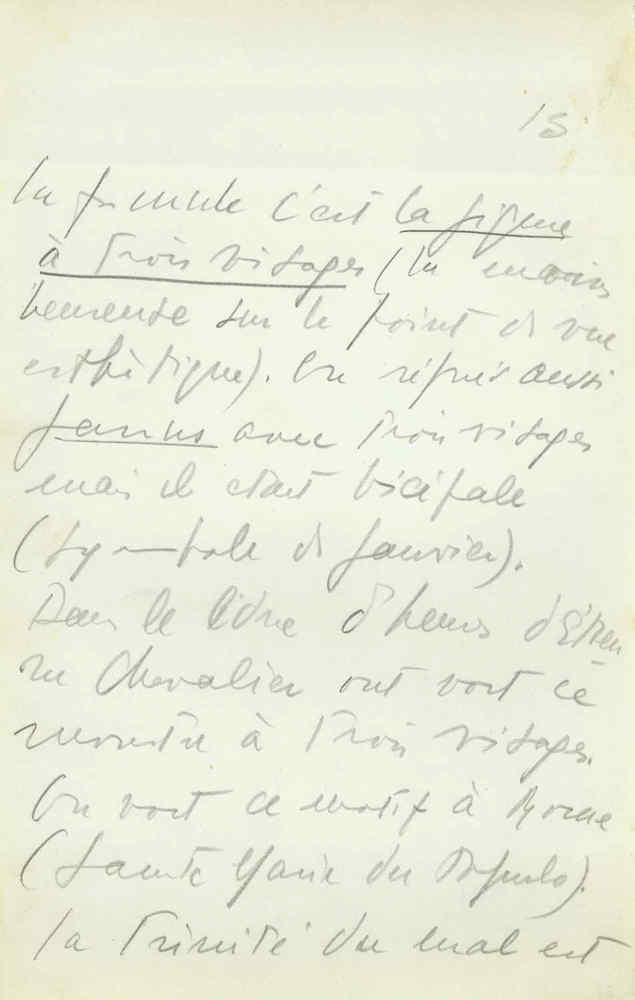 15
La formule c'est la figure
à trois visages (la moins
heureuse sur le point de vue
esthétique). On a aussi
Janus avec trois visages
mais il était bicéfale
(symbole de Janvier).
Dans le livre d'heures d'Étien
ne Chevalier ont voit ce
monstre à trois visages.
On voit ce motif à Rome
(Sainte Marie du Popolo).
La Trinité du mal est